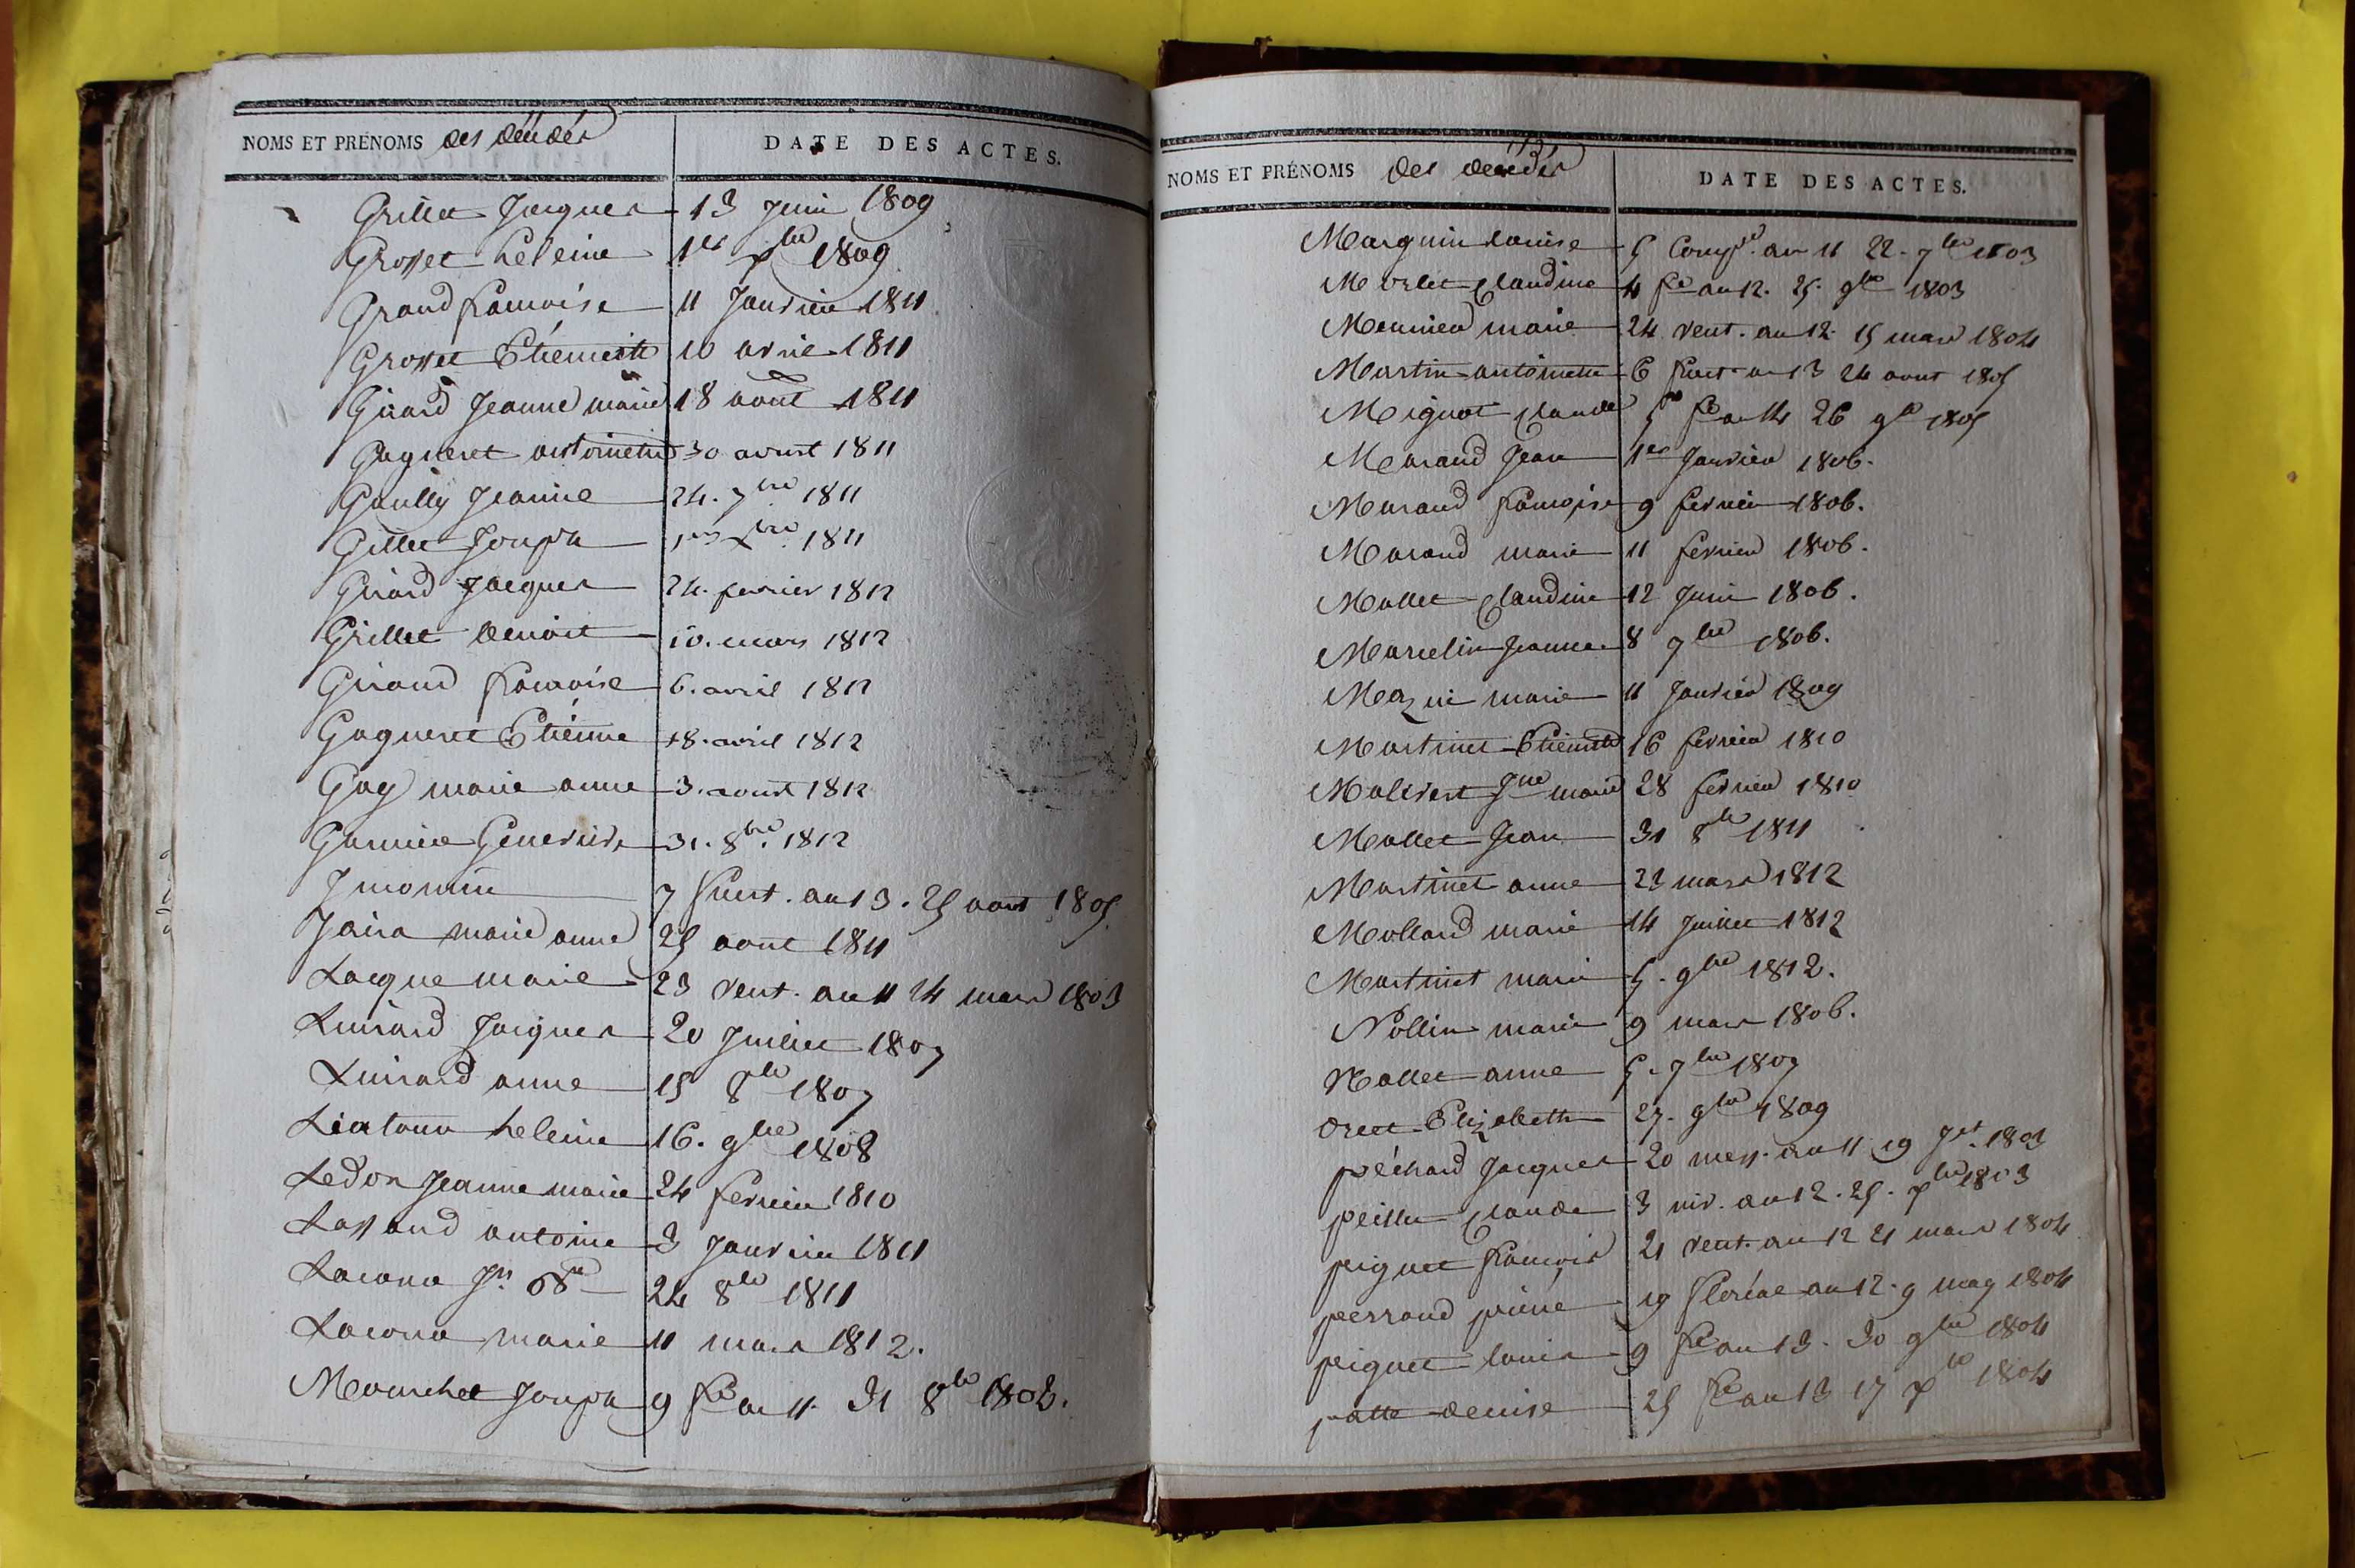 NOMS ET PRÉNOMS des décédés
DATE DES ACTES.
Grillet Jacques 13 Juin 1809
Grosset héleine 1er Xbre 1809
Grand francoise 11 Janvier 1811
Grosset Etiennette 10 avril 1811
Girard Jeanne marie 18 aout 1811
Gagneret antoinette 30 aoust 1811
Gaully Jeanne 24. 7bre 1811
Gillet Joseph 1er Xbre 1811
Girard Jacques 24. fevrier 1812
Grillet benoit 10. mars 1812
Giraud francoise 6. avril 1812
Gagneret Etienne 18. avril 1812
Gay marie anne 3. aoust 1812
Garnier Genevieve 31. 8bre. 1812
Inconnu 7 fruct. an 13. 25 aout 1805
marie anne 25 aout 1811
Lacque marie 23 vent. an 11 14 mars 1803
Luirard Jacques 20 Juillet 1807
Luirard anne 15 8bre 1807
heleine 16. 9bre 1808
Ledon Jeanne marie 24 fevrier 1810
Lassand antoine 3 Janvier 1811
Lacona 24 8bre 1811
Lacona marie 11 mars 1812.
Mouchet Joseph 9 fre an 11. 31 8bre 1802.
NOMS ET PRÉNOMS des décédés
DATE DES ACTES.
Marquin louise 5 Compre. an 11 22. 7bre 1803
Morlet Claudine 4 fre an 12. 25. 9bre 1803
Meunier marie 24 vent. an 12. 15 mars 1804
Martin antoinette 6 fruct. an 13 24 aout 1805
Mignot Claude 5 fre an 14 26 9bre 1805
Marand Jean 1er Janvier 1806.
Marand francoise 9 fevrier 1806.
Marand marie 11 fevrier 1806.
Mallet Claudine 12 Juin 1806.
Marcelin Jeanne 8 7bre 1806.
Mazui marie 11 Janvier 1809
Martinet Etiennette 16 fevrier 1810
Malivert Jne marie 28 fevrier 1810
Mallet Jean 31 8bre 1811
Martinet anne 23 mars 1812
Mollard marie 14 Juillet 1812
Martinet marie 5. 9bre 1812.
Nollin marie 9 mars 1806.
Nallet anne 5. 7bre 1807
Orcet Elizabeth 27. 9bre 1809
péchard Jacques 20 mess. an 11 19 Jet. 1803
peillet Claude 3 niv. an 12. 25. Xbre 1803
piguet francois 21 vent. an 12 21 mars 1804
perrand pierre 19 floréal an 12. 9 may 1804
piguet louis 9 fre an 13. 30 9bre 1804
patte denise 25 fre an 13 17 Xbre 1804